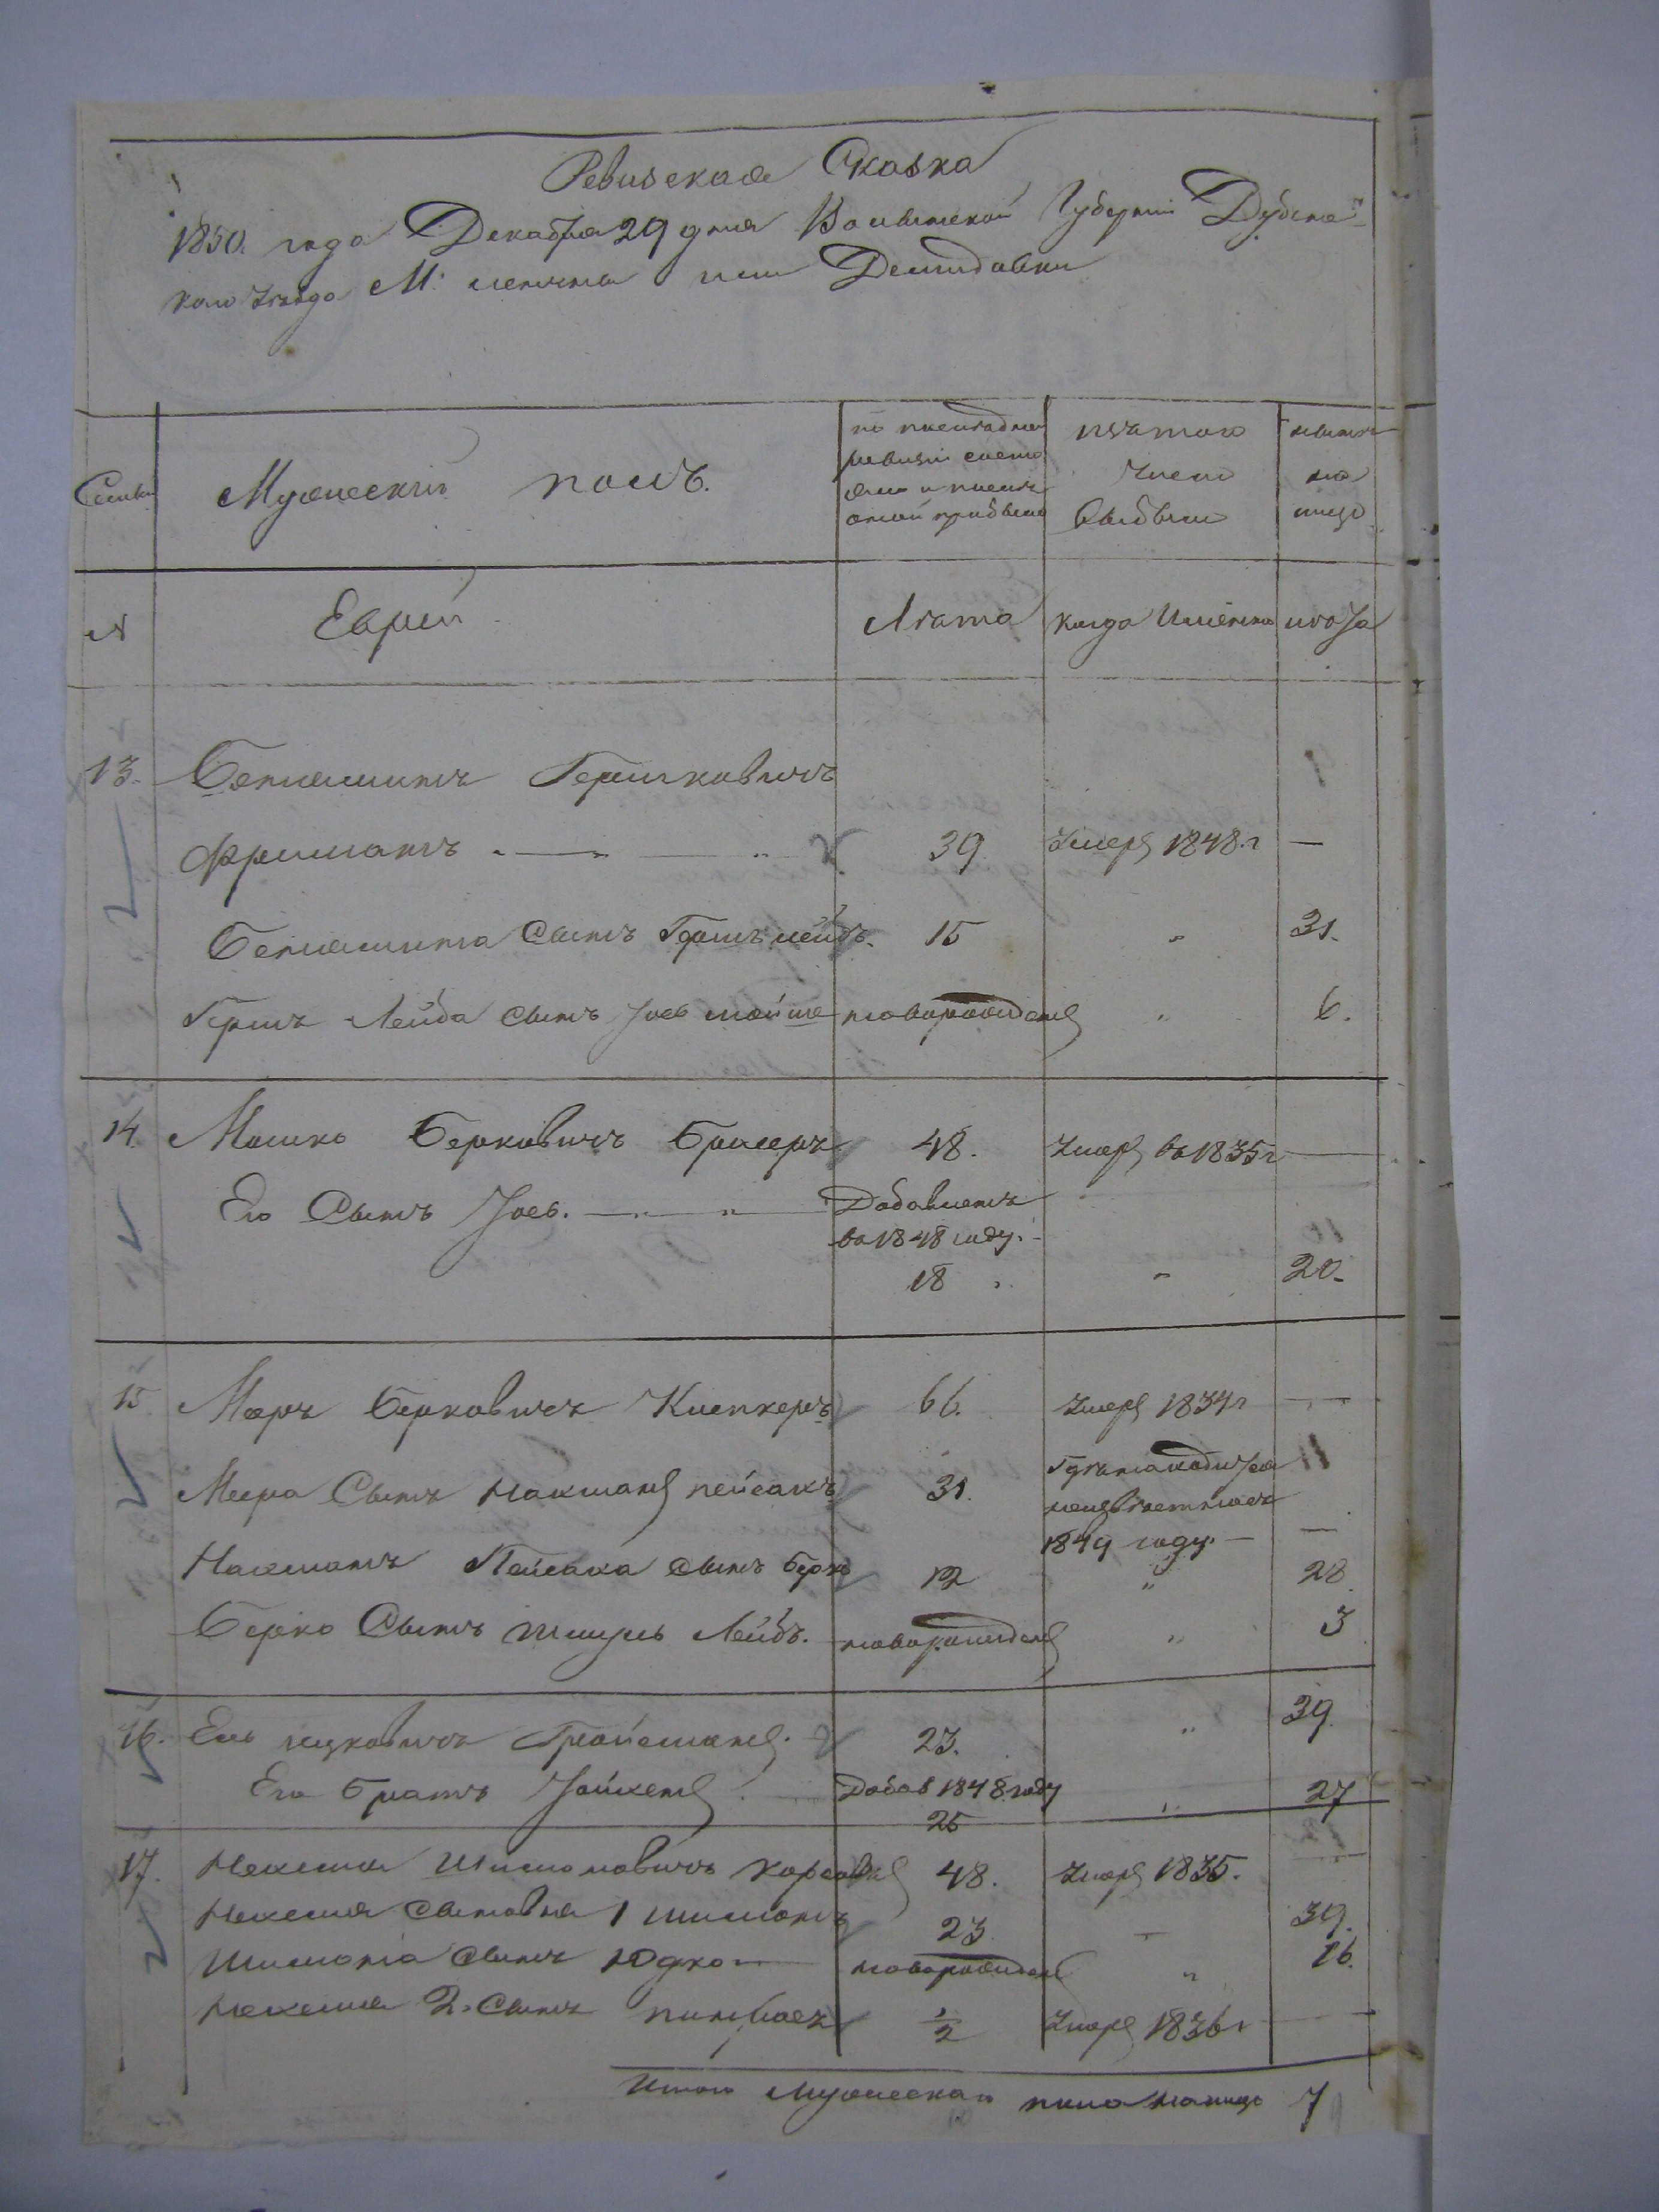 Ревизская Сказка
1850. года Декабря 29 дня Волынской Губернии Дубенс
каго уезда М: местечка или Демидовки
Семьи
Мужескій полъ.
по последней
ревизіи состо
яло и после
оной прибыло
изъ того
числа
выбыло
ныне
на
лицо
№
Евреи
Лета
когда Именно
лета
13.
Беніаминъ Гершковичъ
Фришманъ
39
умеръ 1848.г
—
Беніамина Сынъ Гершъ лейбъ.
15
"
31.
Гершъ Лейба сынъ Іось мойше
новорожденъ
"
6.
14.
Мошко Берковичъ
48.
умеръ въ 1835 г
—
Его Сынъ Іось.
Добавленъ
въ 1848 году.
18
"
20.
15
Меръ Берковичъ
66.
умеръ 1834 г
—
Меера Сынъ Нахманъ пейсахъ
31.
Где находится
неизвестно съ
1849 году.
—
Нахманъ Пейсаха сынъ Берко
12
"
28
Берко Сынъ Шмуль Лейбъ.
новорожденъ
"
3
16.
Ель ицковичъ
23.
"
39.
Его Братъ
Добав 1848 году
25
"
27
17.
Нехемія Шимоновичъ
48.
умеръ 1835.
—
Нехемія сыновья 1 Шимонъ
23
"
39.
Шимона сынъ Юдко
новорожденъ
"
16.
Нехемія 2. Сынъ пинхасъ
1/2
умеръ 1836 г
—
Итого Мужескаго пола налицо 7